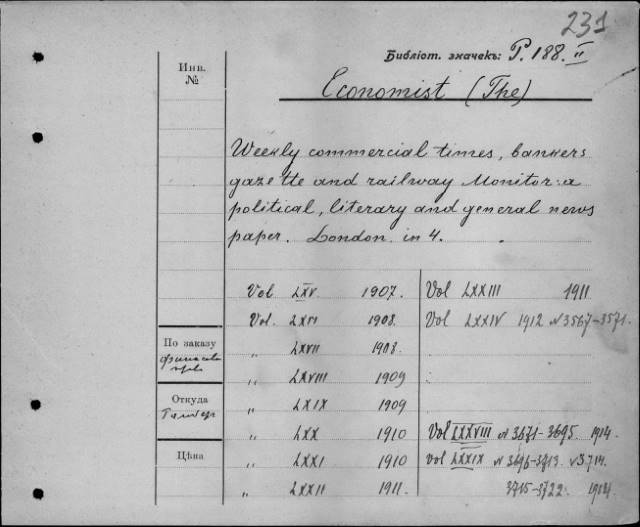 231
Библіот. значекъ: P. 188. II
Инв.
№
Economist (The)
Weekly commercial times, bankers
gazette and railway Monitor: a
political, literary and general news
paper. London. in 4.
Vol. LXV. 1907.
Vol. LXVI 1908.
„ LXVII 1908.
„ LXVIII 1909
„ LXIX 1909
„ LXX 1910
„ LXXI 1910
„ LXXII 1911.
Vol LXXIII 1911
Vol LXXIV 1912 № 3567-3571.
Vol LXXVIII № 3671-3695. 1914.
Vol LXXIX № 3696-3713. № 3714.
3715-3722. 1914.
По заказу
Откуда
Цѣна